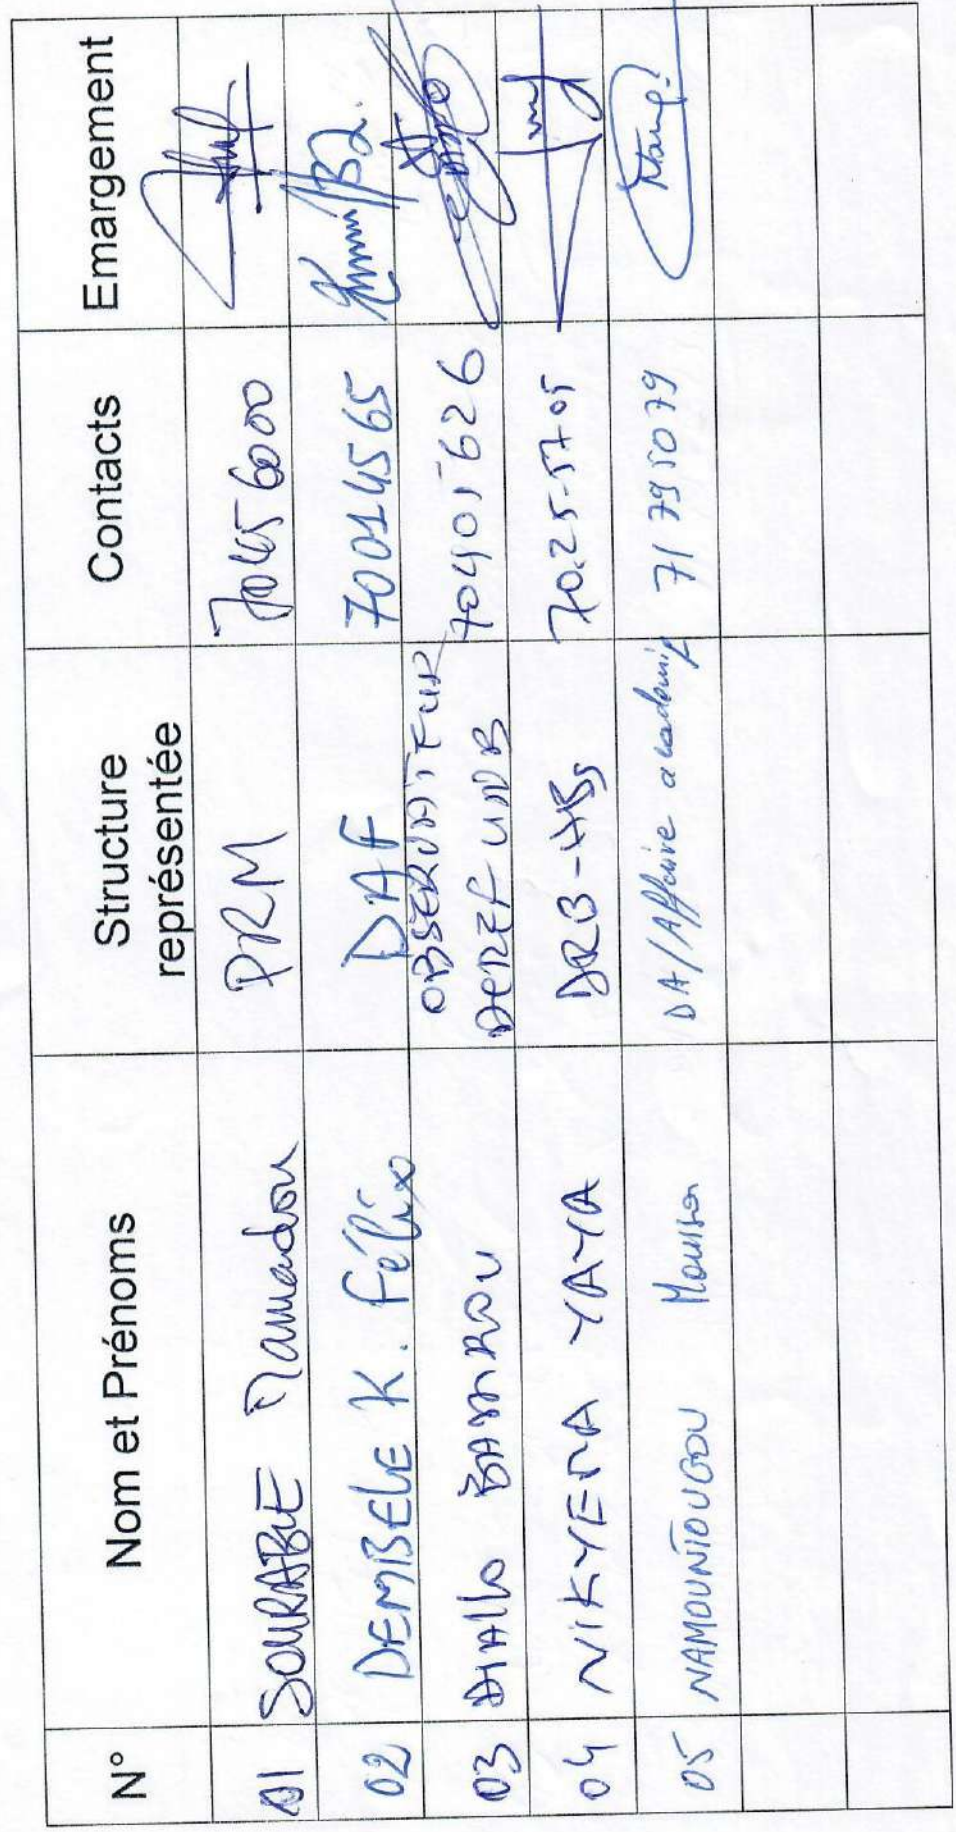 N° Nom et Prénoms Structure représentée Contacts Emargement
01 SOURABIE Mamadou PRM 70456000
02 DEMBELE K. Félix DAF 70014565
03 DIALLO BASSIROU OBSERVATEUR 70401626
04 NIKYEMA YAYA 70.25-57-05
05 NAMOUNTOUGOU Moussa DA/Affaire academiq 71795079